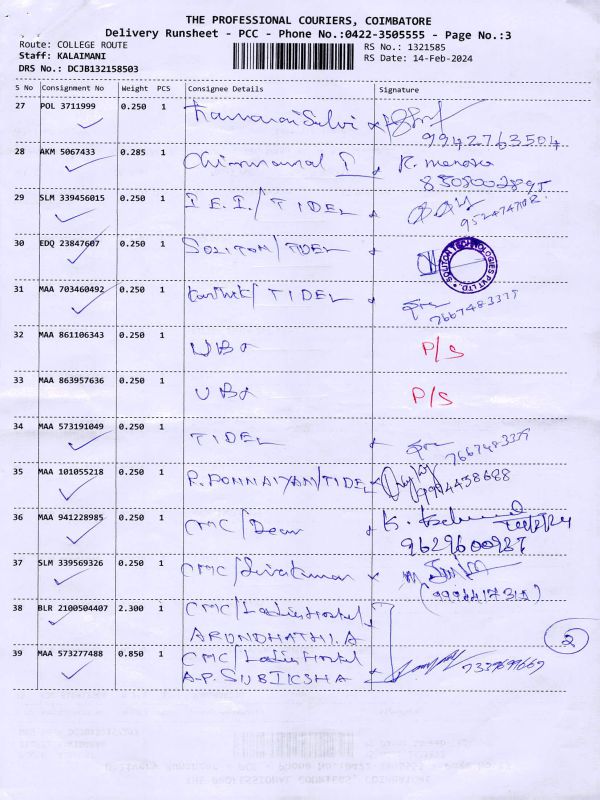 THE PROFESSIONAL COURIERS, COIMBATORE
Delivery Runsheet - PCC - Phone No.:0422-3505555 - Page No.:3
Route: COLLEGE ROUTE RS No.: 1321585
Staff: KALAIMANI RS Date: 14-Feb-2024
DRS No.: DCJB132158503
S No Consignment No Weight PCS Consignee Details Signature
27 POL 3711999 0.250 1
9942763504
28 AKM 5067433 0.285 1
29 SLM 339456015 0.250 1 I.E.I/TIDEL
30 EDQ 23847607 0.250 1 SOLITON/TIDEL
SOLITON TECHNOLOGIES PVT LTD.
31 MAA 703460492 0.250 1 Karthik/TIDEL
7667483375
32 MAA 861106343 0.250 1 P/S
33 MAA 863957636 0.250 1 P/S
34 MAA 573191049 0.250 1 TIDEL
35 MAA 101055218 0.250 1 P.PONNAIYAN/TIDEL
9994438688
36 MAA 941228985 0.250 1 CMC/Dean
9629600987
37 SLM 339569326 0.250 1 CMC/Sivakumar
38 BLR 2100504407 2.300 1 CMC/Ladies Hostel
ARUNDHATHI.A
2
39 MAA 573277488 0.850 1 CMC/Ladies Hostel
A.P.SUBIKSHA